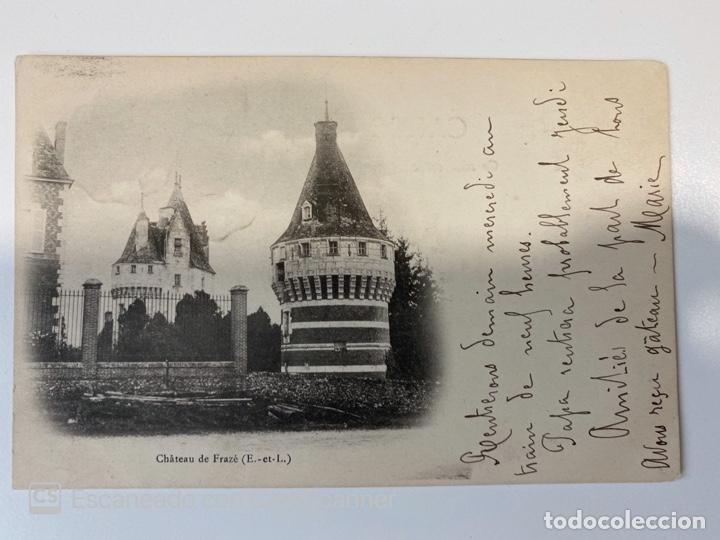 Château de Frazé (E.-et-L.)
Rentrerons demain mercredi au
train de neuf heures.
Papa rentrera probablement jeudi
Amitiés de la part de tous
Avons reçu gâteau — Marie
CS Escaneado con CamScanner
todocoleccion.net